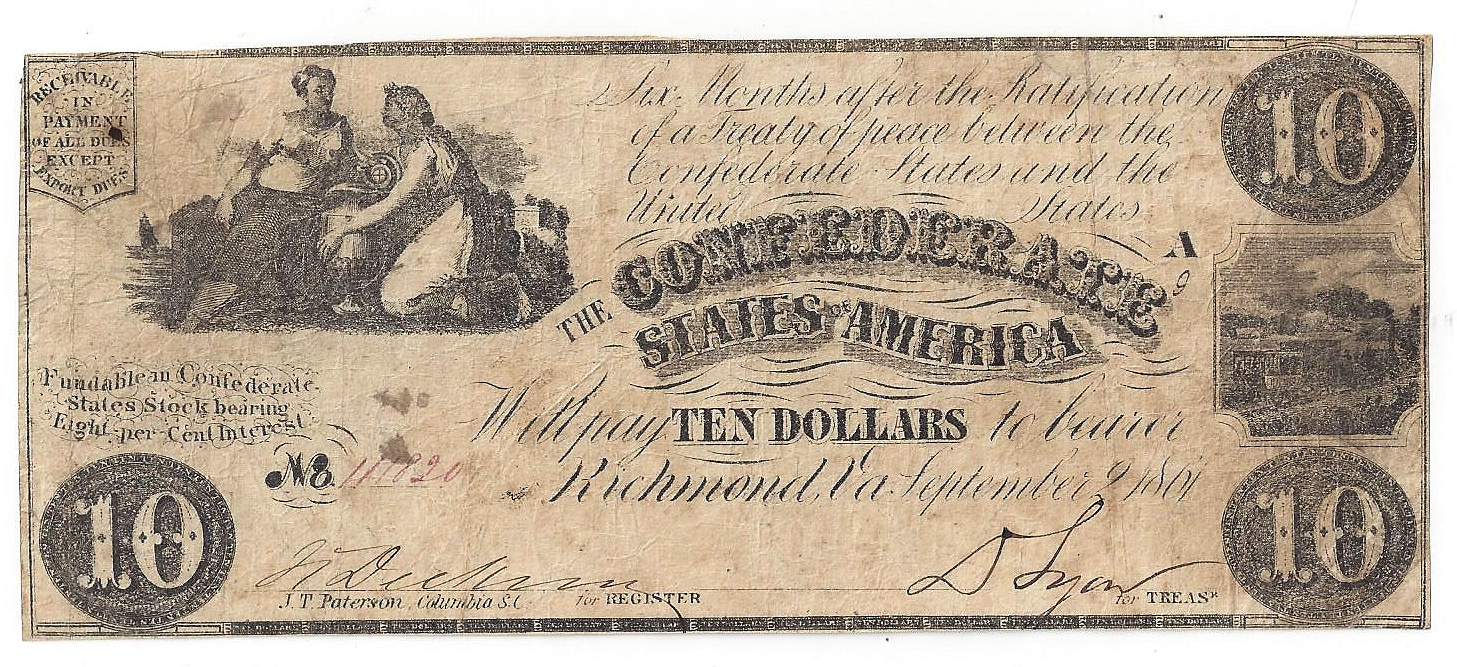 RECEIVABLE
IN
PAYMENT
OF ALL DUES
EXCEPT
EXPORT DUES
Six Months after the Ratification
of a Treaty of peace between the
Confederate States and the
United States
10
A
9
THE CONFEDERATE
STATES OF AMERICA
Fundable in Confederate
States Stock bearing
Eight per Cent Interest
Will pay TEN DOLLARS to bearer
No.
Richmond, Va September 2 1861
10
10
J. T. Paterson, Columbia S.C. for REGISTER
for TREASR